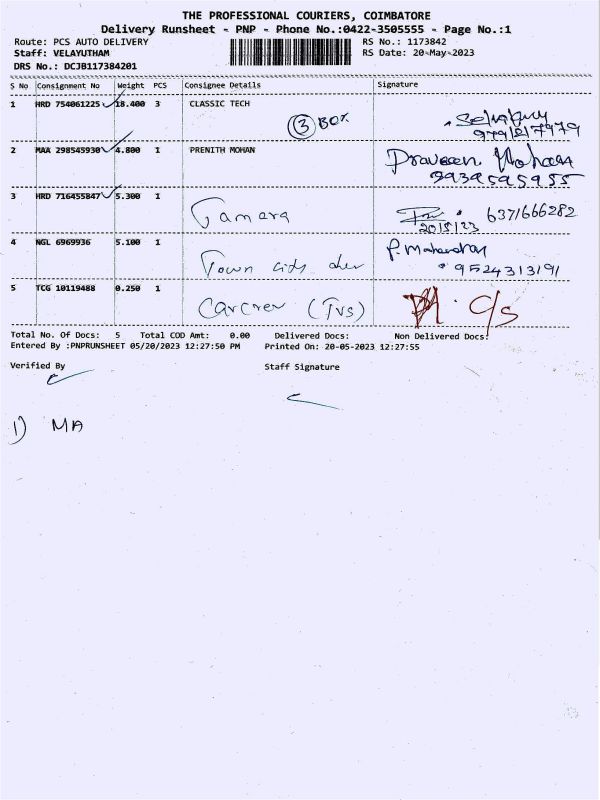 THE PROFESSIONAL COURIERS, COIMBATORE
Delivery Runsheet - PNP - Phone No.:0422-3505555 - Page No.:1
Route: PCS AUTO DELIVERY RS No.: 1173842
Staff: VELAYUTHAM RS Date: 20-May-2023
DRS No.: DCJB117384201
S No Consignment No Weight PCS Consignee Details Signature
1 HRD 754061225 18.400 3 CLASSIC TECH
3 BOX
9791217979
2 MAA 298545930 4.800 1 PRENITH MOHAN
Praveen Mohan
9939595955
3 HRD 716455847 5.300 1 Tamara 6371666282
20/5/23
4 NGL 6969936 5.100 1 Town city P. Mahendran
9524313191
5 TCG 10119488 0.250 1 (TVS) C/S
Total No. Of Docs: 5 Total COD Amt: 0.00 Delivered Docs: Non Delivered Docs:
Entered By :PNPRUNSHEET 05/20/2023 12:27:50 PM Printed On: 20-05-2023 12:27:55
Verified By Staff Signature
1) MA